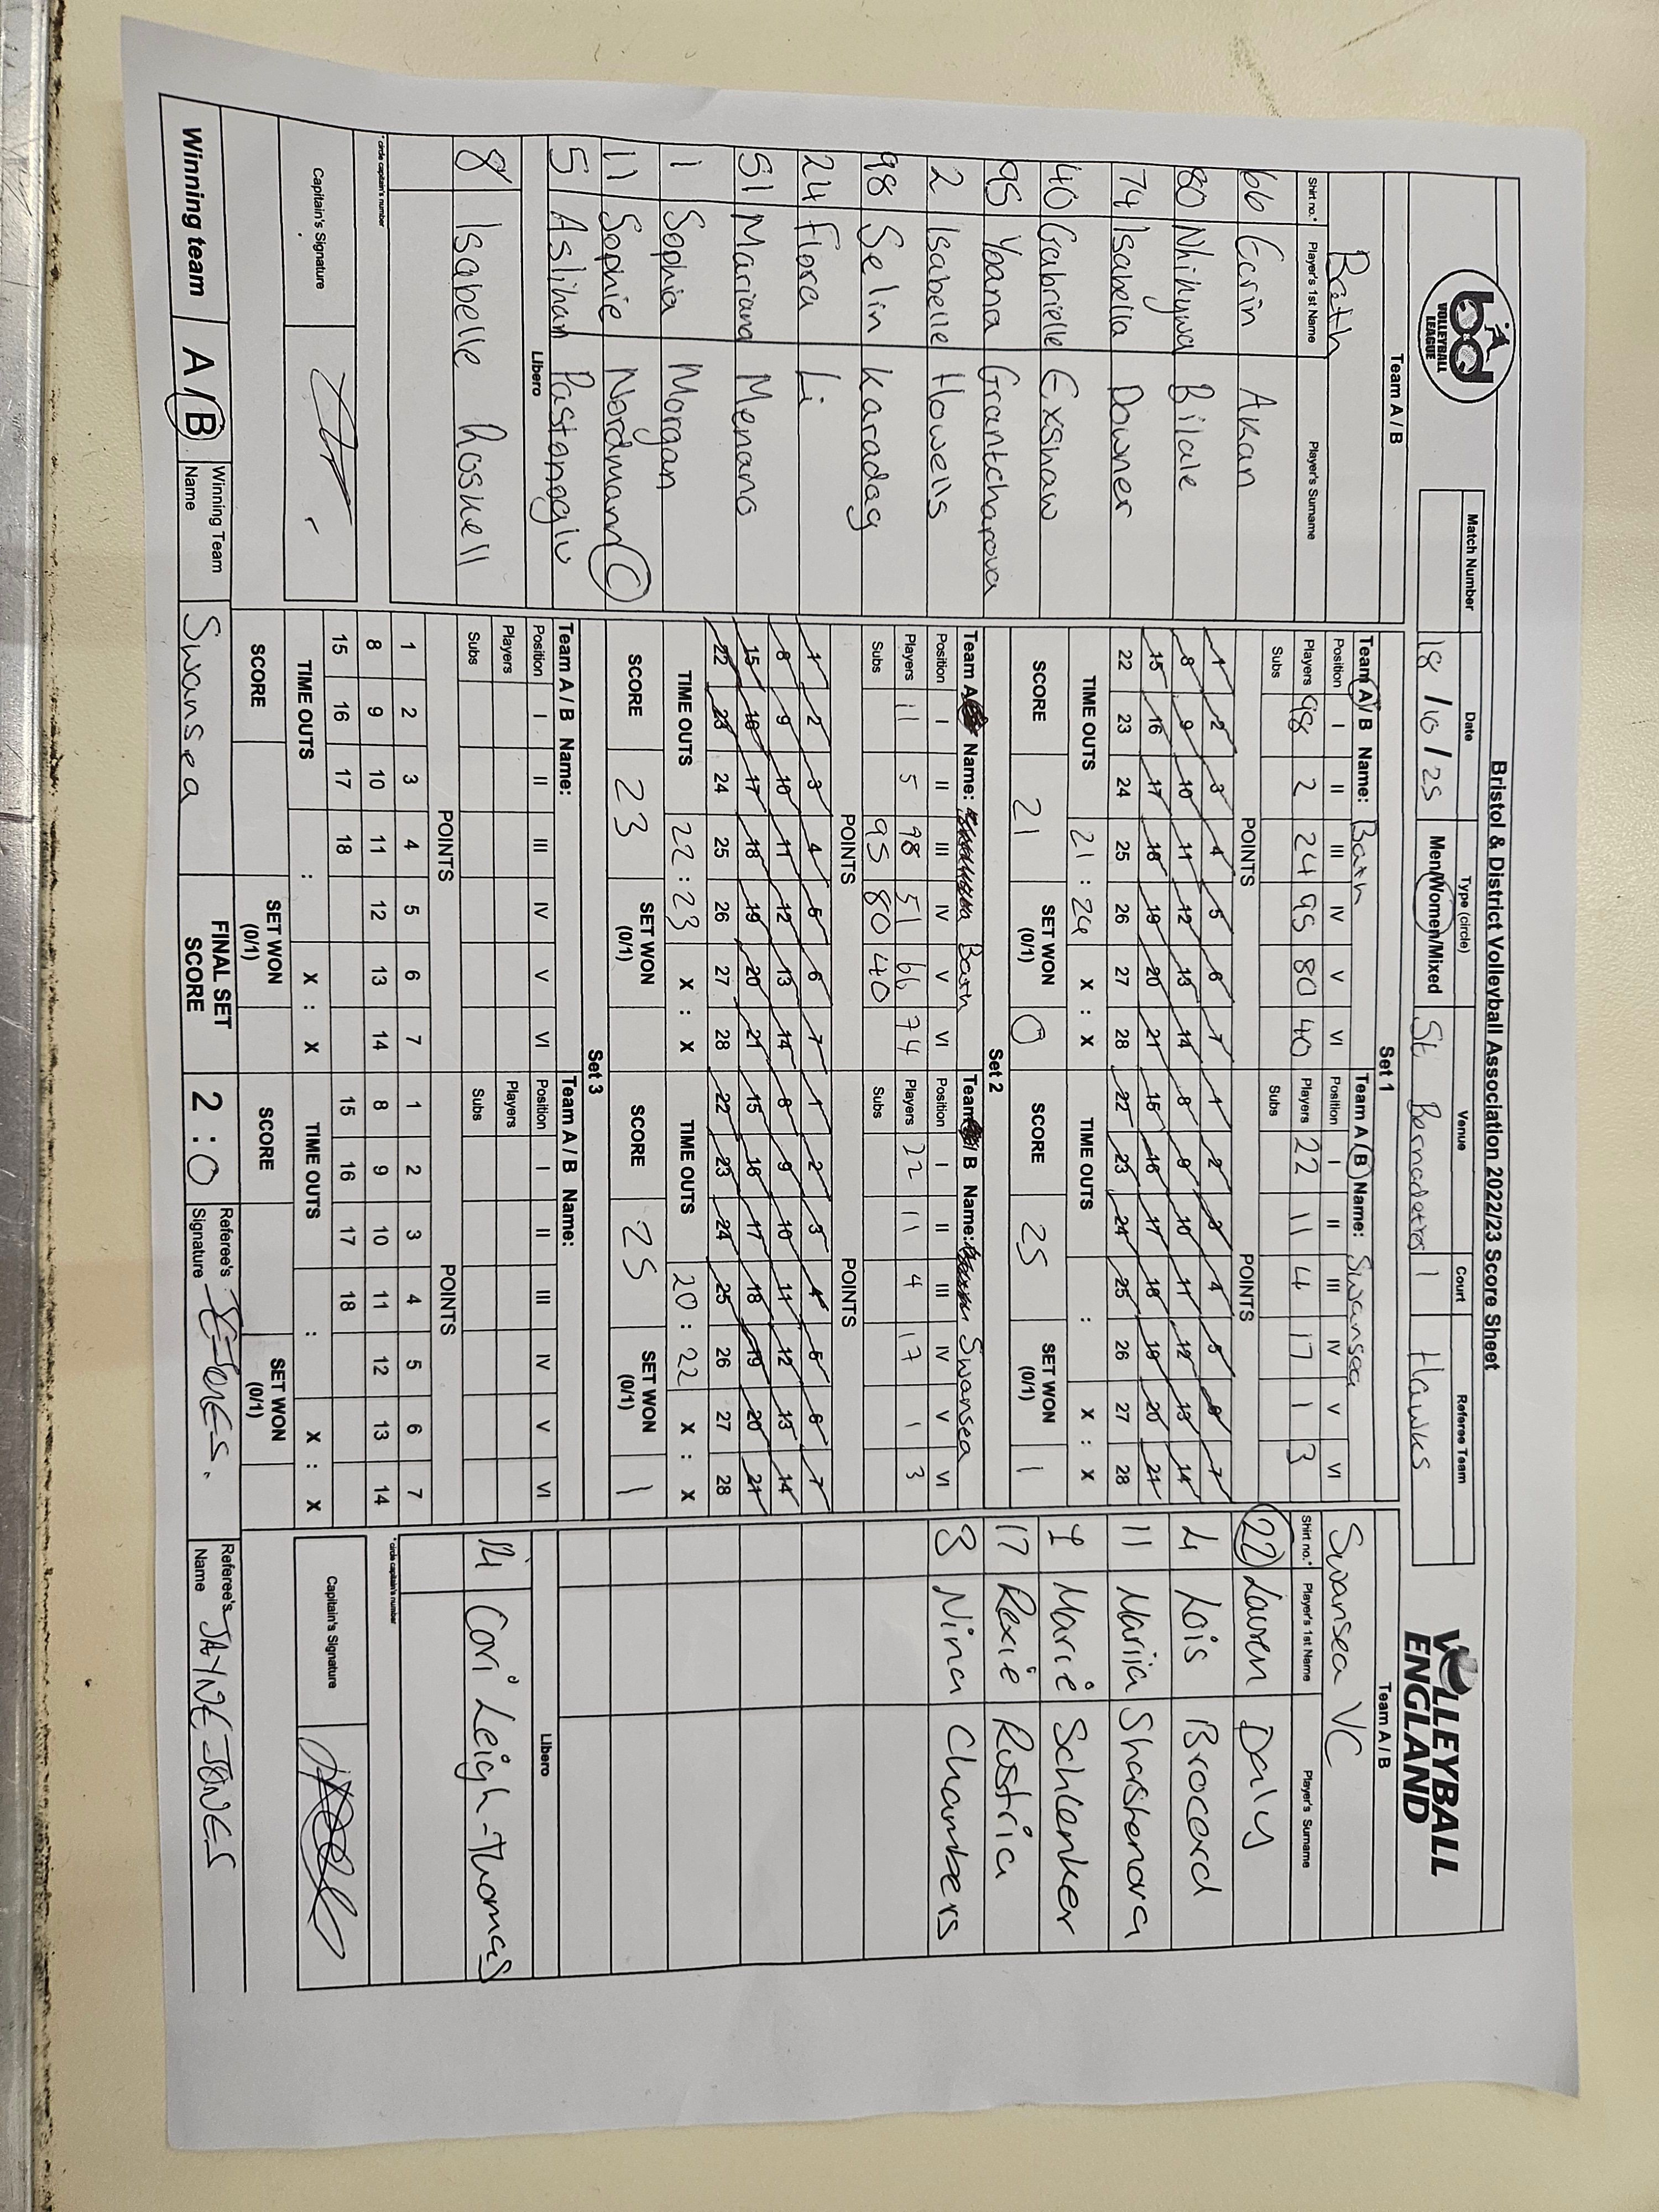 Bristol & District Volleyball Association 2022/23 Score Sheet
bd VOLLEYBALL LEAGUE
VOLLEYBALL ENGLAND
Match Number Date Type (circle) Venue Court Referee Team
18/10/25 Men/Women/Mixed St Bernadettes 1 Hawks
Team A / B
Bath
Shirt no.* Player's 1st Name Player's Surname
66 Ecrin Akan
80 Nhikywa Bilale
74 Isabella Downer
40 Gabrielle Exshaw
95 Yoana Grantcharova
2 Isabelle Howells
98 Selin Karadag
24 Flora Li
51 Mariana Menano
1 Sophia Morgan
11 Sophie Nordmann C
5 Aslihan Pastonoglu
Libero
8 Isabelle Roskell
*circle captain's number
Capitain's Signature
Set 1
Team A / B Name: Bath
Position I II III IV V VI
Players 98 2 24 95 80 40
Subs
POINTS
1 2 3 4 5 6 7
8 9 10 11 12 13 14
15 16 17 18 19 20 21
22 23 24 25 26 27 28
TIME OUTS 21 : 24 X : X
SCORE 21 SET WON (0/1) 0
Team A / B Name: Swansea
Position I II III IV V VI
Players 22 11 4 17 1 3
Subs
POINTS
1 2 3 4 5 6 7
8 9 10 11 12 13 14
15 16 17 18 19 20 21
22 23 24 25 26 27 28
TIME OUTS : X : X
SCORE 25 SET WON (0/1) 1
Set 2
Team A Name: Bath
Position I II III IV V VI
Players 11 5 98 51 66 74
Subs 95 80 40
POINTS
1 2 3 4 5 6 7
8 9 10 11 12 13 14
15 16 17 18 19 20 21
22 23 24 25 26 27 28
TIME OUTS 22 : 23 X : X
SCORE 23 SET WON (0/1)
Team B Name: Swansea
Position I II III IV V VI
Players 22 11 4 17 1 3
Subs
POINTS
1 2 3 4 5 6 7
8 9 10 11 12 13 14
15 16 17 18 19 20 21
22 23 24 25 26 27 28
TIME OUTS 20 : 22 X : X
SCORE 25 SET WON (0/1) 1
Set 3
Team A / B Name:
Position I II III IV V VI
Players
Subs
POINTS
1 2 3 4 5 6 7
8 9 10 11 12 13 14
15 16 17 18
TIME OUTS : X : X
SCORE SET WON (0/1)
Team A / B Name:
Position I II III IV V VI
Players
Subs
POINTS
1 2 3 4 5 6 7
8 9 10 11 12 13 14
15 16 17 18
TIME OUTS : X : X
SCORE SET WON (0/1)
Team A / B
Swansea VC
Shirt no.* Player's 1st Name Player's Surname
22 Lauren Daly
4 Lois Brocard
11 Mariia Sharshenova
Marie Schlenker
17 Rexie Rustria
3 Nina Chambers
Libero
14 Cori Leigh-Thomas
*circle captain's number
Capitain's Signature
Winning team A / B Winning Team Name Swansea FINAL SET SCORE 2 : 0 Referee's Signature Referee's Name JAYNE JONES